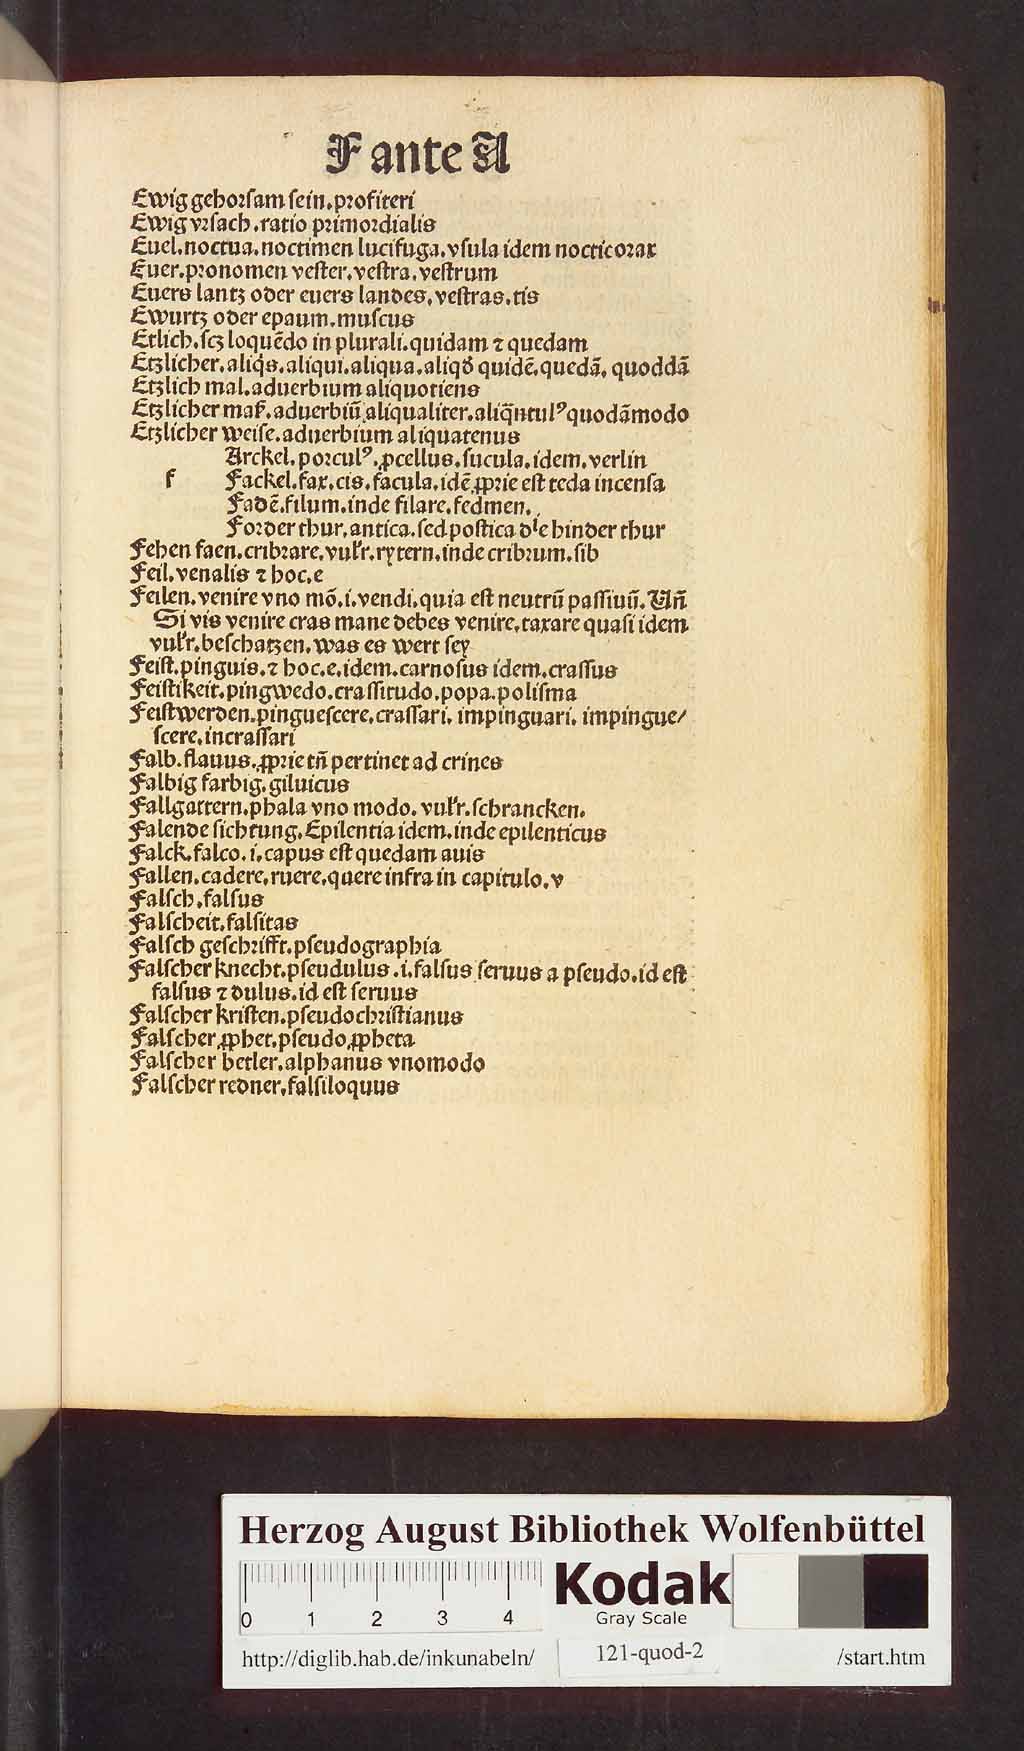 F ante A
Ewig gehorſam ſein.profiteri
Ewig vrſach.ratio primordialis
Euel.noctua.noctimen lucifuga.vſula idem nocticorax
Euer.pronomen veſter.veſtra.veſtrum
Euers lantz oder euers landes.veſtras.tis
Ewurtz oder epaum.muſcus
Etlich.ſcz loquēdo in plurali.quidam ⁊ quedam
Etzlicher.aliq̇s.aliqui.aliqua.aliqđ quidē.quedā.quoddā
Etzlich mal.aduerbium aliquotiens
Etzlicher maß.aduerbiū aliqualiter.aliq̄ntulꝰ quodāmodo
Etzlicher weiſe.aduerbium aliquatenus
Arckel.porculꝰ.ꝓcellus.ſucula.idem.verlin
f Fackel.fax.cis.facula.idē ꝓprie eſt teda incenſa
Fadē.filum.inde filare.fedmen.
Forder thur.antica.ſed poſtica die hinder thur
Fehen faen.cribrare.vulr.rytern.inde cribrum.ſib
Feil.venalis ⁊ hoc.e
Feilen.venire vno mō.i.vendi.quia eſt neutrū paſſiuū.Vn̄
Si vis venire cras mane debes venire.taxare quaſi idem
vulr.beſchatzen.was es wert ſey
Feiſt.pinguis.⁊ hoc.e.idem.carnoſus idem.craſſus
Feiſtikeit.pingwedo.craſſitudo.popa.poliſma
Feiſtwerden.pingueſcere.craſſari.impinguari.impingue/
ſcere.incraſſari
Falb.flauus.ꝓprie tn̄ pertinet ad crines
Falbig farbig.giluicus
Fallgattern.phala vno modo.vulr.ſchrancken.
Falende ſichtung.Epilentia idem.inde epilenticus
Falck.falco.i.capus eſt quedam auis
Fallen.cadere.ruere.quere infra in capitulo.v
Falſch.falſus
Falſcheit.falſitas
Falſch geſchrifft.pſeudographia
Falſcher knecht.pſeudulus.i.falſus ſeruus a pſeudo.id eſt
falſus ⁊ dulus.id eſt ſeruus
Falſcher kriſten.pſeudochriſtianus
Falſcher ꝓphet.pſeudo ꝓpheta
Falſcher betler.alphanus vnomodo
Falſcher redner.falſiloquus
Herzog August Bibliothek Wolfenbüttel
0 1 2 3 4
Kodak
Gray Scale
http://diglib.hab.de/inkunabeln/ 121-quod-2 /start.htm